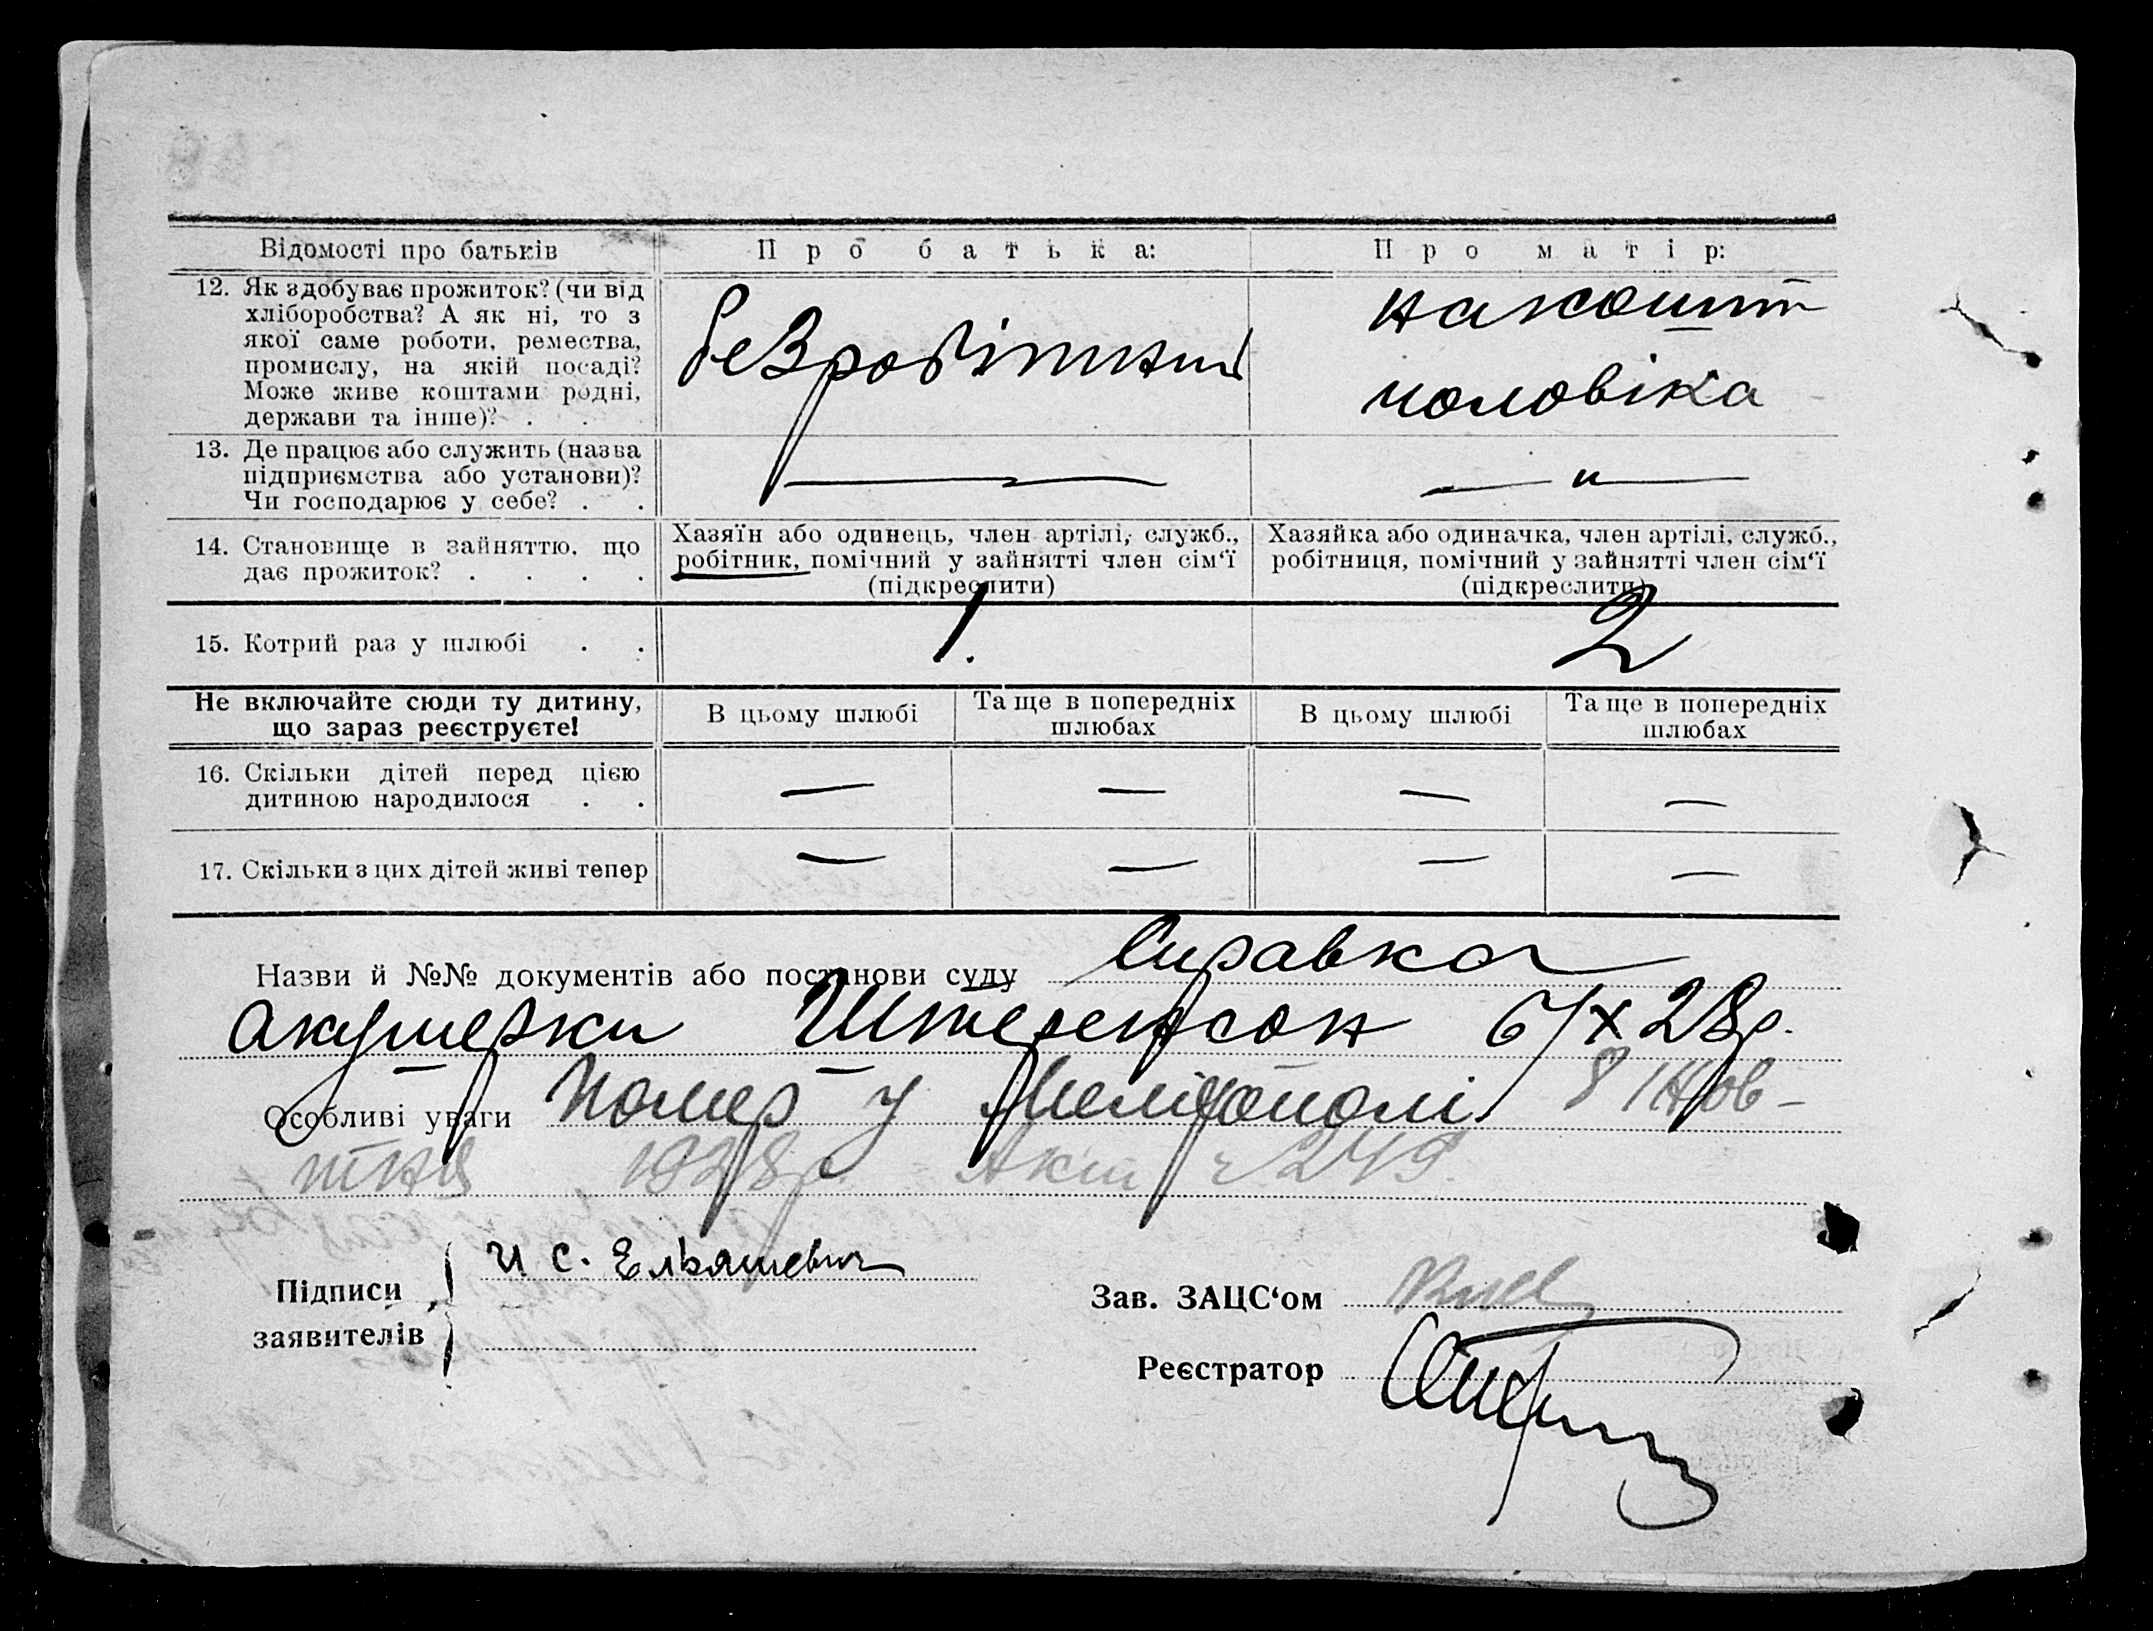 Відомості про батьків
Про батька:
Про матір:
12. Як здобуває прожиток? (чи від
хліборобства? А як ні, то з
якої саме роботи, ремества,
промислу, на якій посаді?
Може живе коштами родні,
держави та інше)? . .
безробітний
на кошт
чоловіка
13. Де працює або служить (назва
підприємства або установи)?
Чи господарює у себе? . .
—
— „ —
14. Становище в зайняттю, що
дає прожиток? . . . .
Хазяїн або одинець, член артілі, служб.,
робітник, помічний у зайнятті член сім‘ї
(підкреслити)
Хазяйка або одиначка, член артілі, служб.,
робітниця, помічний у зайнятті член сім‘ї
(підкреслити)
15. Котрий раз у шлюбі . .
1.
2
Не включайте сюди ту дитину,
що зараз реєструєте!
В цьому шлюбі
Та ще в попередніх
шлюбах
В цьому шлюбі
Та ще в попередніх
шлюбах
16. Скільки дітей перед цією
дитиною народилося . .
— — — —
17. Скільки з цих дітей живі тепер
— — — —
Назви й №№ документів або постанови суду Справка
акушерки 6/X 28р.
Особливі уваги Помер у Меліtополі 8 Жов-
тня 1928р. Акт 249
Підписи
заявителів
И С. Ельяшевич
Зав. ЗАЦС‘ом
Реєстратор